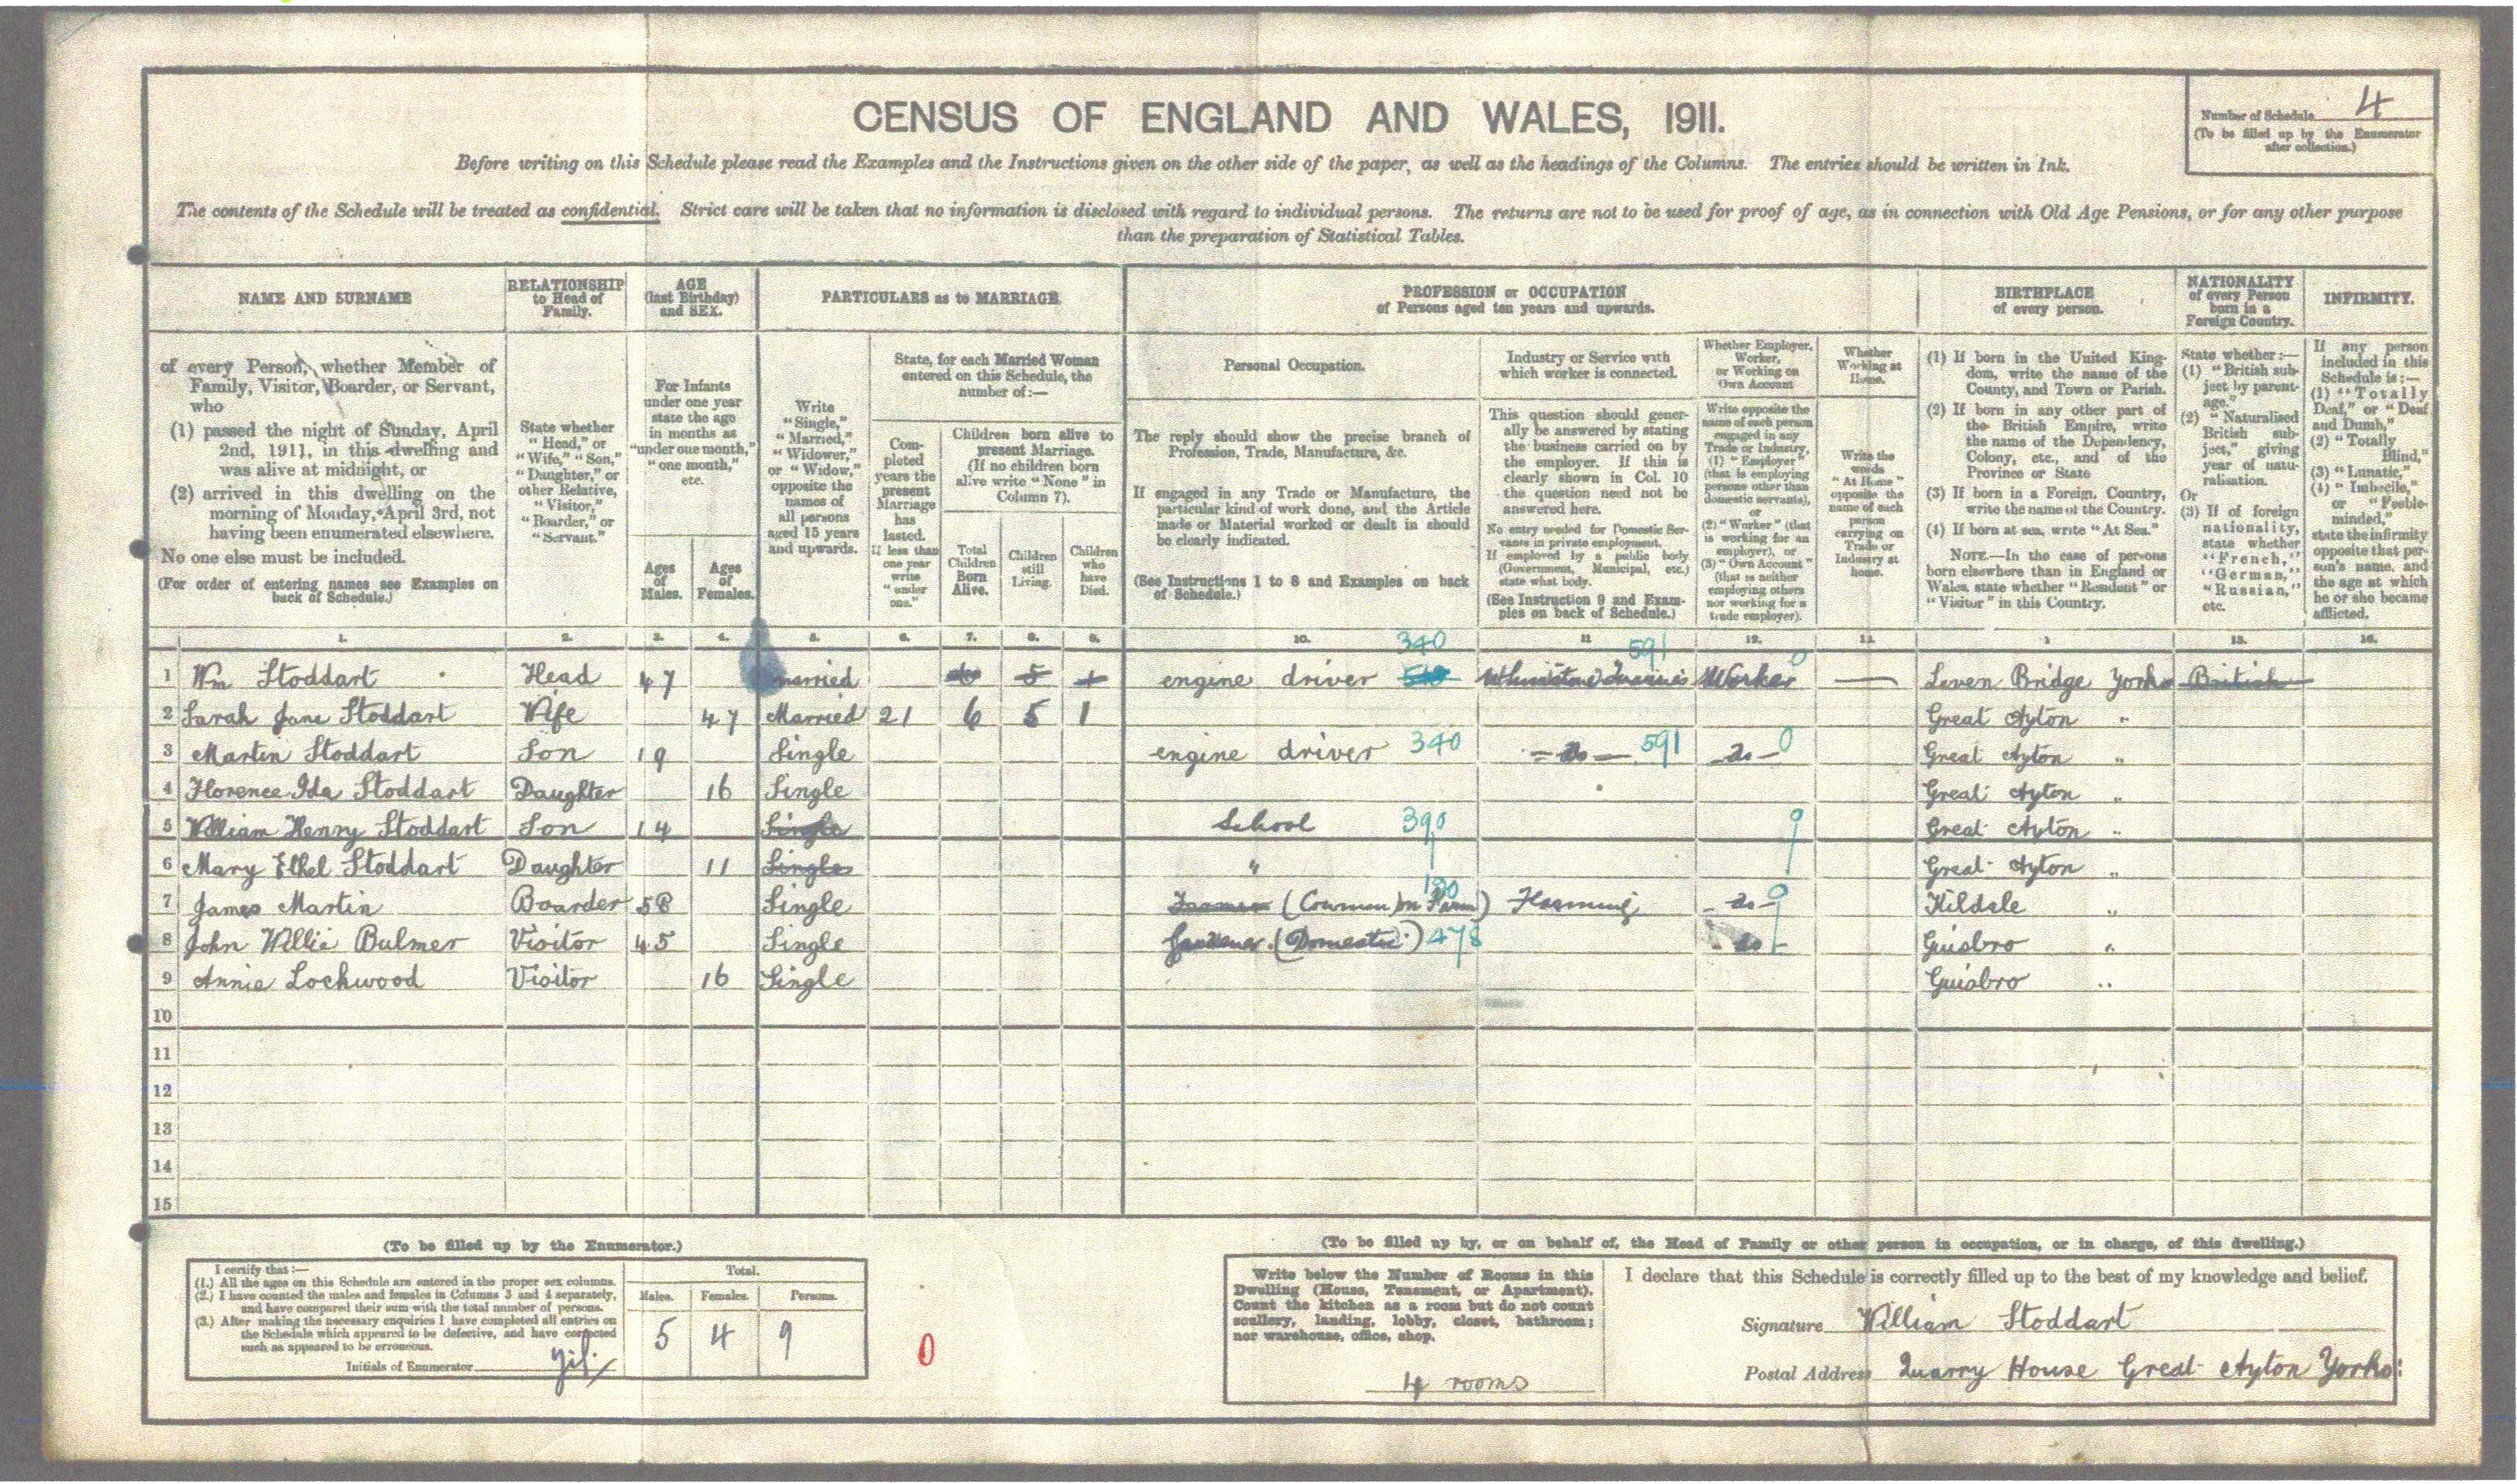 CENSUS OF ENGLAND AND WALES, 1911.
Number of Schedule 4
(To be filled up by the Enumerator
after collection.)
Before writing on this Schedule please read the Examples and the Instructions given on the other side of the paper, as well as the headings of the Columns. The entries should be written in Ink.
The contents of the Schedule will be treated as confidential. Strict care will be taken that no information is disclosed with regard to individual persons. The returns are not to be used for proof of age, as in connection with Old Age Pensions, or for any other purpose
than the preparation of Statistical Tables.
NAME AND SURNAME
RELATIONSHIP
to Head of
Family.
AGE
(last Birthday)
and SEX.
PARTICULARS as to MARRIAGE.
PROFESSION or OCCUPATION
of Persons aged ten years and upwards.
BIRTHPLACE
of every person.
NATIONALITY
of every Person
born in a
Foreign Country.
INFIRMITY.
of every Person, whether Member of
Family, Visitor, Boarder, or Servant,
who
(1) passed the night of Sunday, April
2nd, 1911, in this dwelling and
was alive at midnight, or
(2) arrived in this dwelling on the
morning of Monday, April 3rd, not
having been enumerated elsewhere.
No one else must be included.
(For order of entering names see Examples on
back of Schedule.)
State whether
"Head," or
"Wife," "Son,"
"Daughter," or
other Relative,
"Visitor,"
"Boarder," or
"Servant."
For Infants
under one year
state the age
in months as
"under one month,"
"one month,"
etc.
Ages
of
Males.
Ages
of
Females.
Write
"Single,"
"Married,"
"Widower,"
or "Widow,"
opposite the
names of
all persons
aged 15 years
and upwards.
State, for each Married Woman
entered on this Schedule, the
number of:—
Com-
pleted
years the
present
Marriage
has
lasted.
If less than
one year
write
"under
one."
Children born alive to
present Marriage.
(If no children born
alive write "None" in
Column 7).
Total
Children
Born
Alive.
Children
still
Living.
Children
who
have
Died.
Personal Occupation.
The reply should show the precise branch of
Profession, Trade, Manufacture, &c.
If engaged in any Trade or Manufacture, the
particular kind of work done, and the Article
made or Material worked or dealt in should
be clearly indicated.
(See Instructions 1 to 8 and Examples on back
of Schedule.)
Industry or Service with
which worker is connected.
This question should gener-
ally be answered by stating
the business carried on by
the employer. If this is
clearly shown in Col. 10
the question need not be
answered here.
No entry needed for Domestic Ser-
vants in private employment.
If employed by a public body
(Government, Municipal, etc.)
state what body.
(See Instruction 9 and Exam-
ples on back of Schedule.)
Whether Employer,
Worker,
or Working on
Own Account
Write opposite the
name of each person
engaged in any
Trade or Industry,
(1) "Employer"
(that is employing
persons other than
domestic servants),
or
(2) "Worker" (that
is working for an
employer), or
(3) "Own Account"
(that is neither
employing others
nor working for a
trade employer).
Whether
Working at
Home.
Write the
words
"At Home"
opposite the
name of each
person
carrying on
Trade or
Industry at
home.
(1) If born in the United King-
dom, write the name of the
County, and Town or Parish.
(2) If born in any other part of
the British Empire, write
the name of the Dependency,
Colony, etc., and of the
Province or State
(3) If born in a Foreign Country,
write the name of the Country.
(4) If born at sea, write "At Sea."
NOTE.—In the case of persons
born elsewhere than in England or
Wales, state whether "Resident" or
"Visitor" in this Country.
State whether:—
(1) "British sub-
ject by parent-
age,"
(2) "Naturalised
British sub-
ject," giving
year of natu-
ralisation.
Or
(3) If of foreign
nationality,
state whether
"French,"
"German,"
"Russian,"
etc.
If any person
included in this
Schedule is:—
(1) "Totally
Deaf," or "Deaf
and Dumb,"
(2) "Totally
Blind,"
(3) "Lunatic,"
(4) "Imbecile,"
or "Feeble-
minded,"
state the infirmity
opposite that per-
son's name, and
the age at which
he or she became
afflicted.
1. 2. 3. 4. 5. 6. 7. 8. 9. 10. 11 12. 13. 15. 16.
340 591
1 Wm Stoddart Head 47 Married 6 5 1 engine driver Whinstone Quarries Worker 0 — Leven Bridge Yorks British
2 Sarah Jane Stoddart Wife 47 Married 21 6 5 1 Great Ayton "
3 Martin Stoddart Son 19 Single engine driver 340 — do — 591 — do — 0 Great Ayton "
4 Florence Ida Stoddart Daughter 16 Single Great Ayton "
5 William Henry Stoddart Son 14 Single School 390 Great Ayton "
6 Mary Ethel Stoddart Daughter 11 Single " Great Ayton "
7 James Martin Boarder 58 Single (Common on Farm) Farming — do — Kildale "
8 John Willie Bulmer Visitor 45 Single Gardener (Domestic) 478 — do — Guisbro "
9 Annie Lockwood Visitor 16 Single Guisbro "
10
11
12
13
14
15
(To be filled up by the Enumerator.)
I certify that:—
(1.) All the ages on this Schedule are entered in the proper sex columns.
(2.) I have counted the males and females in Columns 3 and 4 separately,
and have compared their sum with the total number of persons.
(3.) After making the necessary enquiries I have completed all entries on
the Schedule which appeared to be defective, and have corrected
such as appeared to be erroneous.
Initials of Enumerator
Total.
Males. Females. Persons.
5 4 9
0
(To be filled up by, or on behalf of, the Head of Family or other person in occupation, or in charge, of this dwelling.)
Write below the Number of Rooms in this
Dwelling (House, Tenement, or Apartment).
Count the kitchen as a room but do not count
scullery, landing, lobby, closet, bathroom;
nor warehouse, office, shop.
4 rooms
I declare that this Schedule is correctly filled up to the best of my knowledge and belief.
Signature William Stoddart
Postal Address Quarry House Great Ayton Yorks: